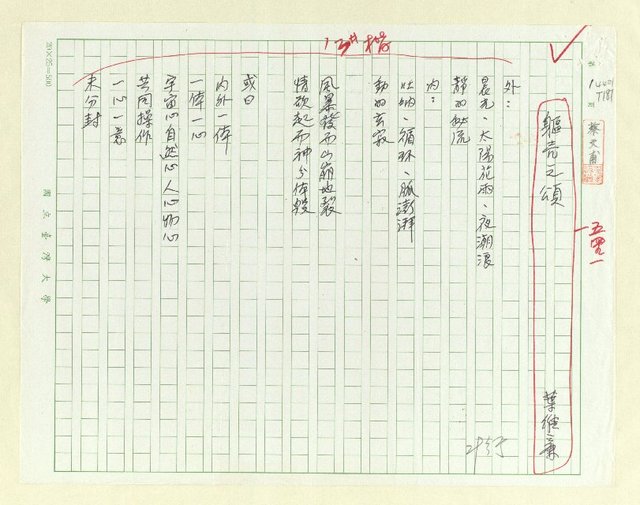 軀壳之頌
葉維廉
外：
晨光、太陽花雨、夜潮浪
靜的激流
內：
吐納、循環、脈澎湃
動的玄寂
風暴發而山崩地裂
情欲起而神分体毀
或曰
內外一体
一体一心
宇宙心自然心人心物心
共同操作
一心一意
未分封
蔡文甫
國立臺灣大學